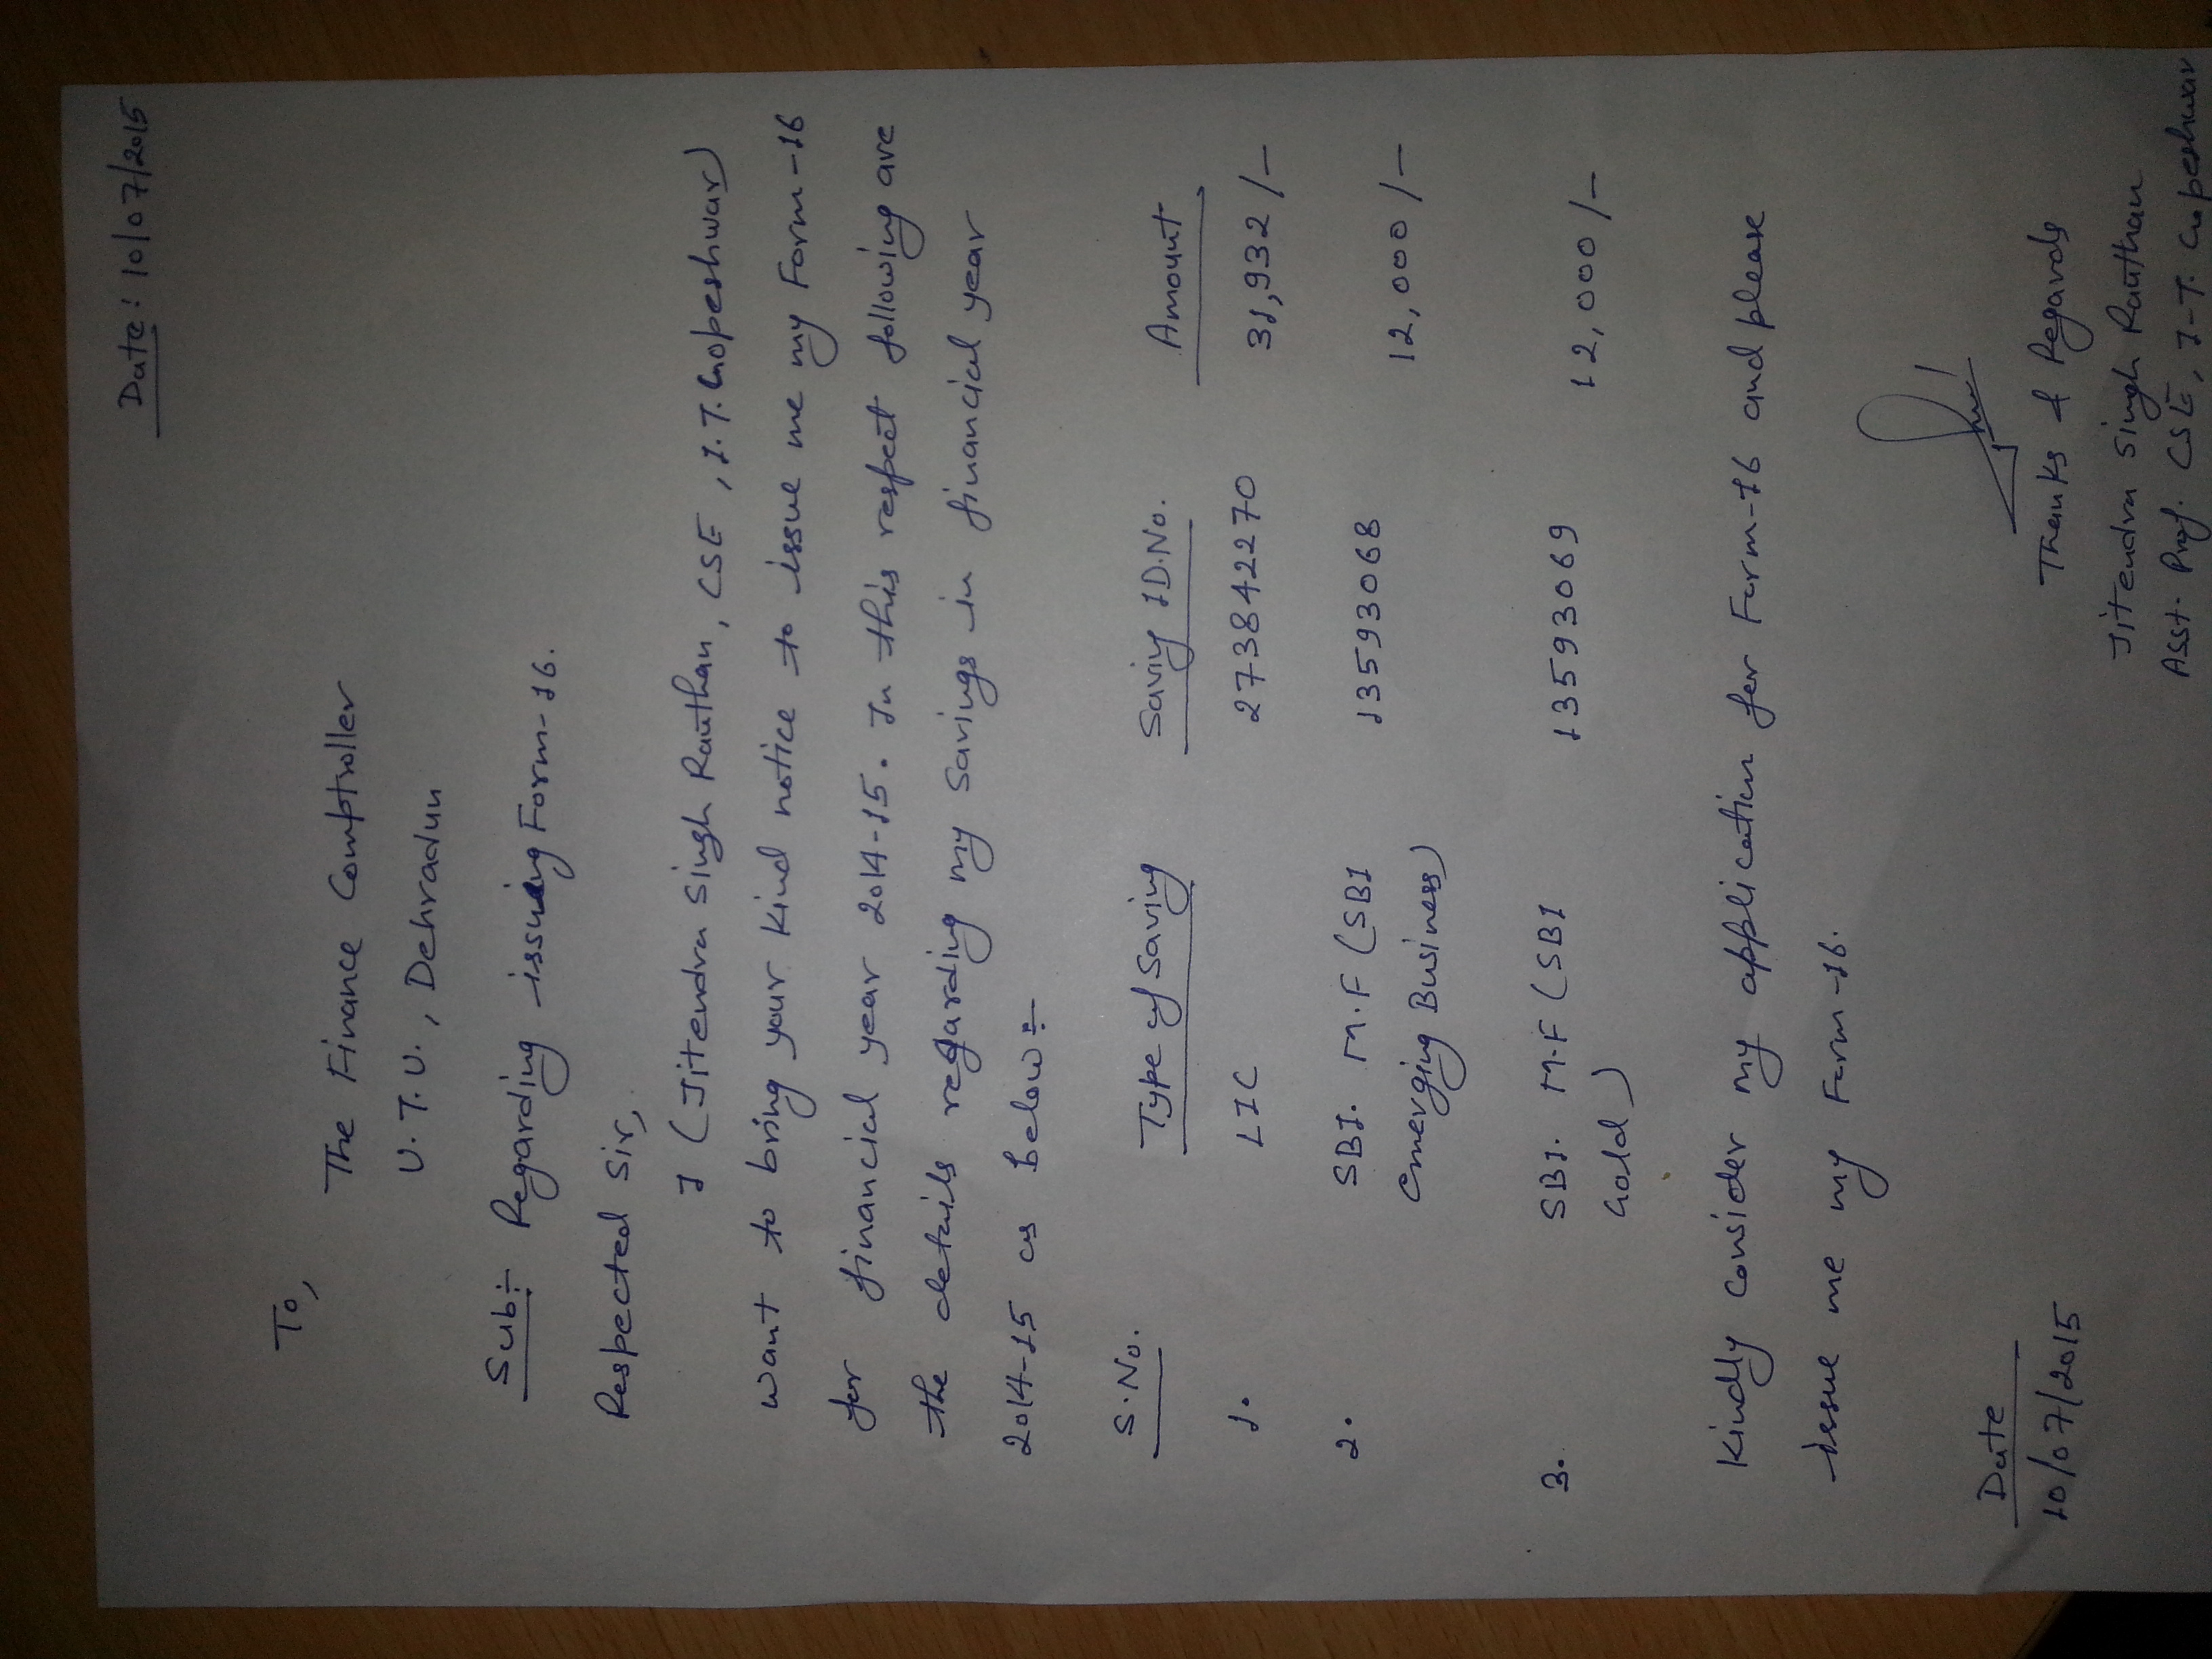 Date: 10/07/2015
To,
The Finance Comptroller
U.T.U., Dehradun
Sub:- Regarding issuing Form-16.
Respected Sir,
I (Jitendra Singh Rauthan, CSE, I.T. Gopeshwar)
want to bring your kind notice to issue me my Form-16
for financial year 2014-15. In this respect following are
the details regarding my savings in financial year
2014-15 as below:-
S.No. Type of Saving Saving ID.No. Amount
1. LIC 273842270 31,932/-
2. SBI. M.F (SBI 13593068 12,000/-
Emerging Business)
3. SBI. M.F (SBI 13593069 12,000/-
Gold)
Kindly consider my application for Form-16 and please
issue me my Form-16.
Date
10/07/2015
Thanks & Regards
Jitendra Singh Rauthan
Asst. Prof. CSE, I.T. Gopeshwar